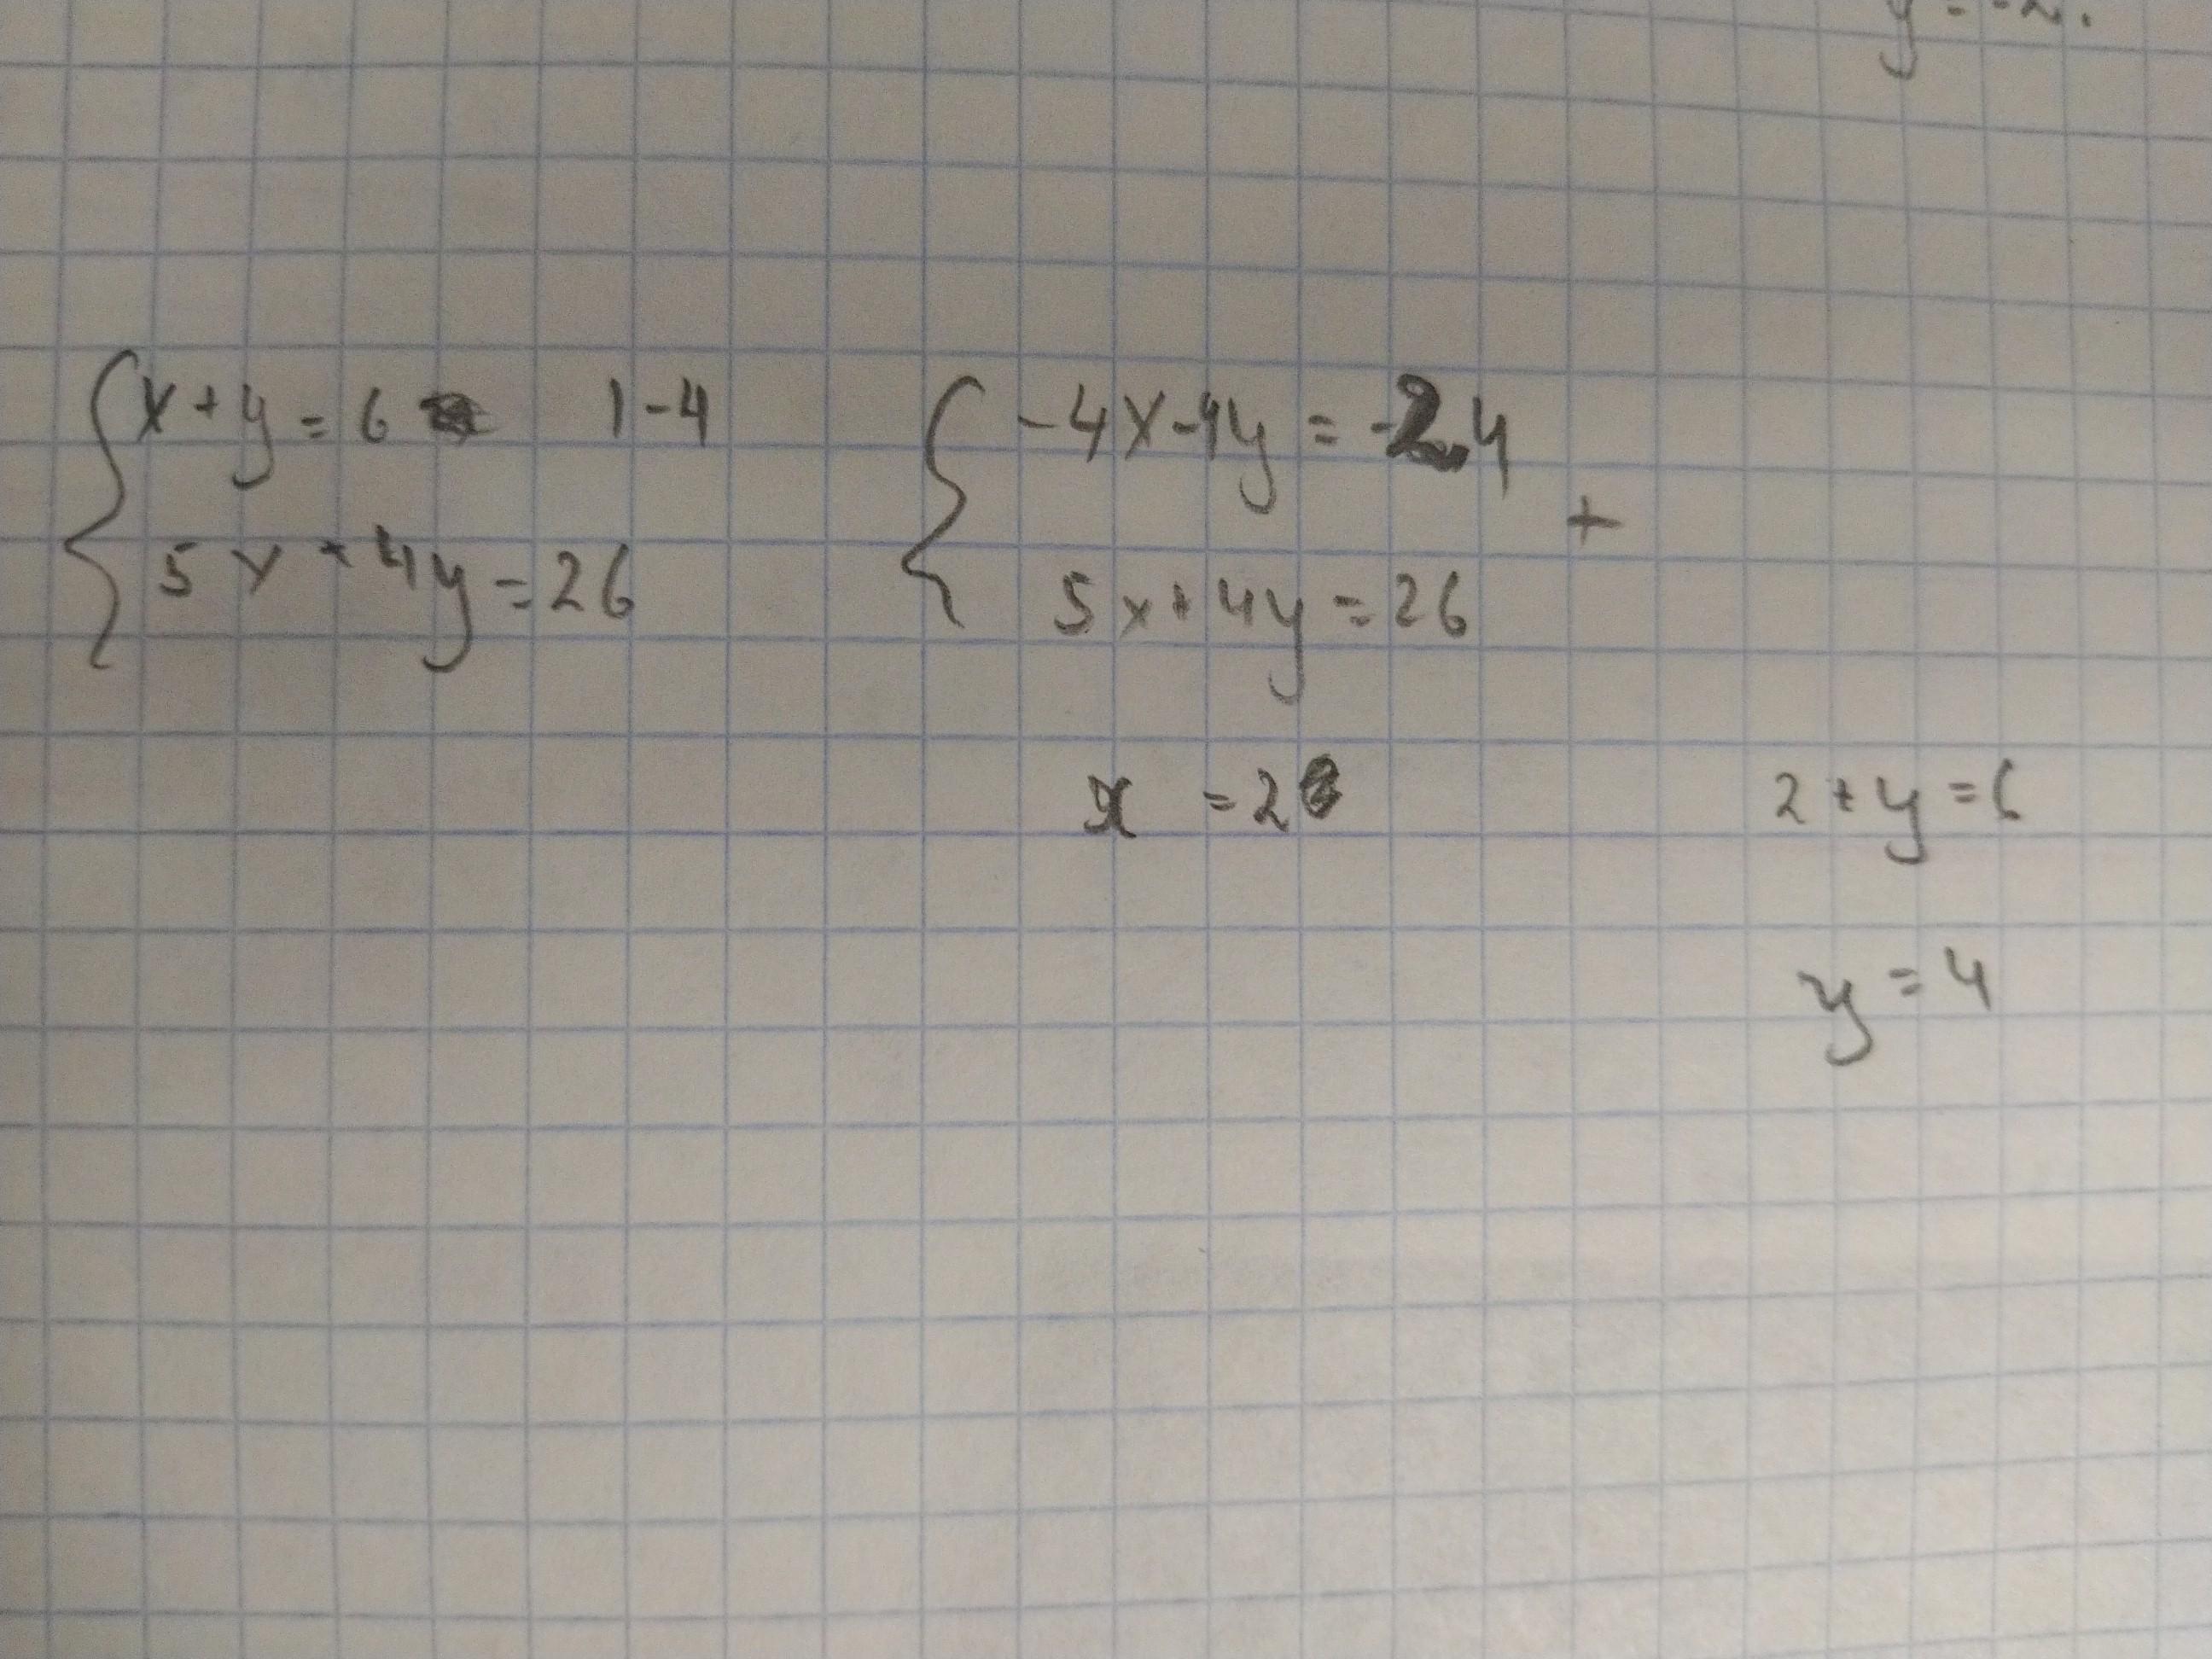 y = -2.
x + y = 6 | -4
5x + 4y = 26
-4x - 4y = -24
+
5x + 4y = 26
x = 2
2 + y = 6
y = 4